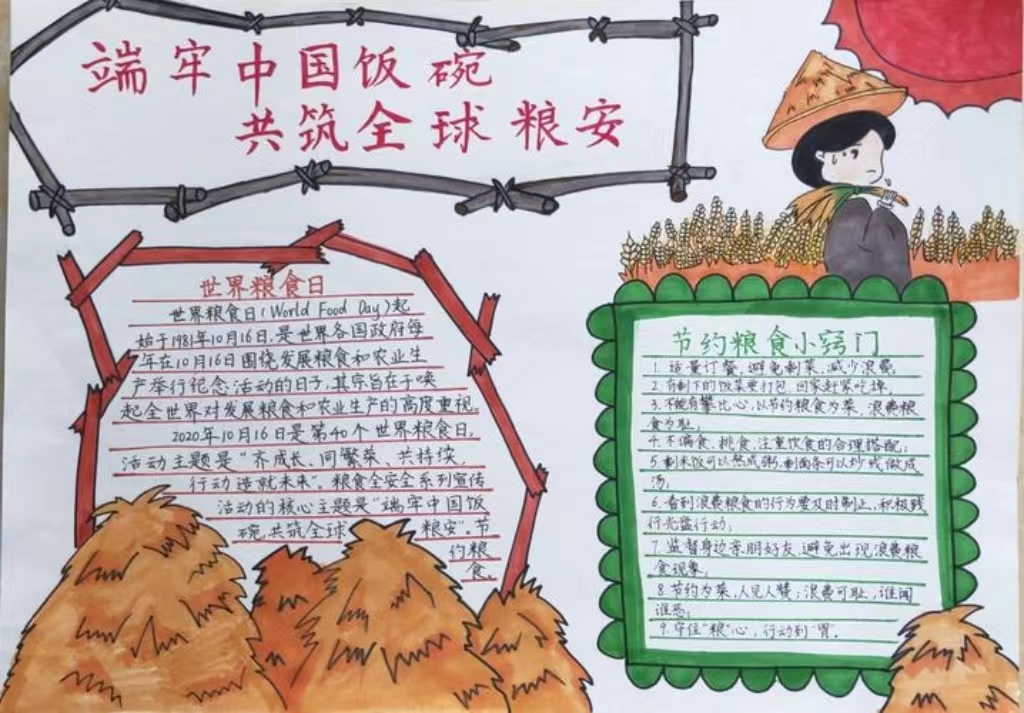 端牢中国饭碗
共筑全球粮安
世界粮食日
世界粮食日(World Food Day)起
始于1981年10月16日,是世界各国政府每
年在10月16日围绕发展粮食和农业生
产举行纪念活动的日子,其宗旨在于唤
起全世界对发展粮食和农业生产的高度重视。
2020年10月16日是第40个世界粮食日,
活动主题是“齐成长、同繁荣、共持续,
行动造就未来”。粮食全安全系列宣传
活动的核心主题是“端牢中国饭
碗,共筑全球粮安”。节
约粮
食。
节约粮食小窍门
1. 适量订餐,避免剩菜,减少浪费
2. 有剩下的饭菜要打包,回家赶紧吃掉,
3. 不能有攀比心,以节约粮食为荣,浪费粮
食为耻,
4. 不偏食、挑食,注重饮食的合理搭配;
5. 剩米饭可以熬成粥,剩面条可以炒或做成
汤;
6. 看到浪费粮食的行为要及时制止,积极践
行光盘行动;
7. 监督身边亲朋好友,避免出现浪费粮
食现象,
8. 节约为荣,人见人赞;浪费可耻,谁闻
谁恶;
9. 守住“粮”心,行动到“胃”.